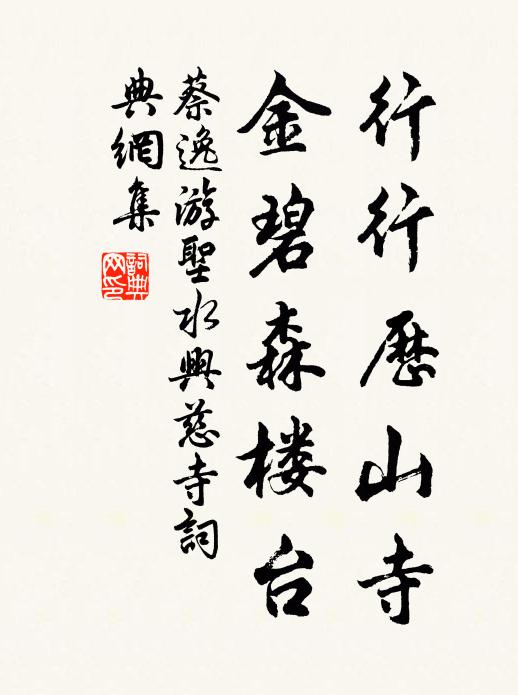 行行歷山寺
金碧森楼台
蔡逸游聖水興慈寺詞
典網集
詞典网印